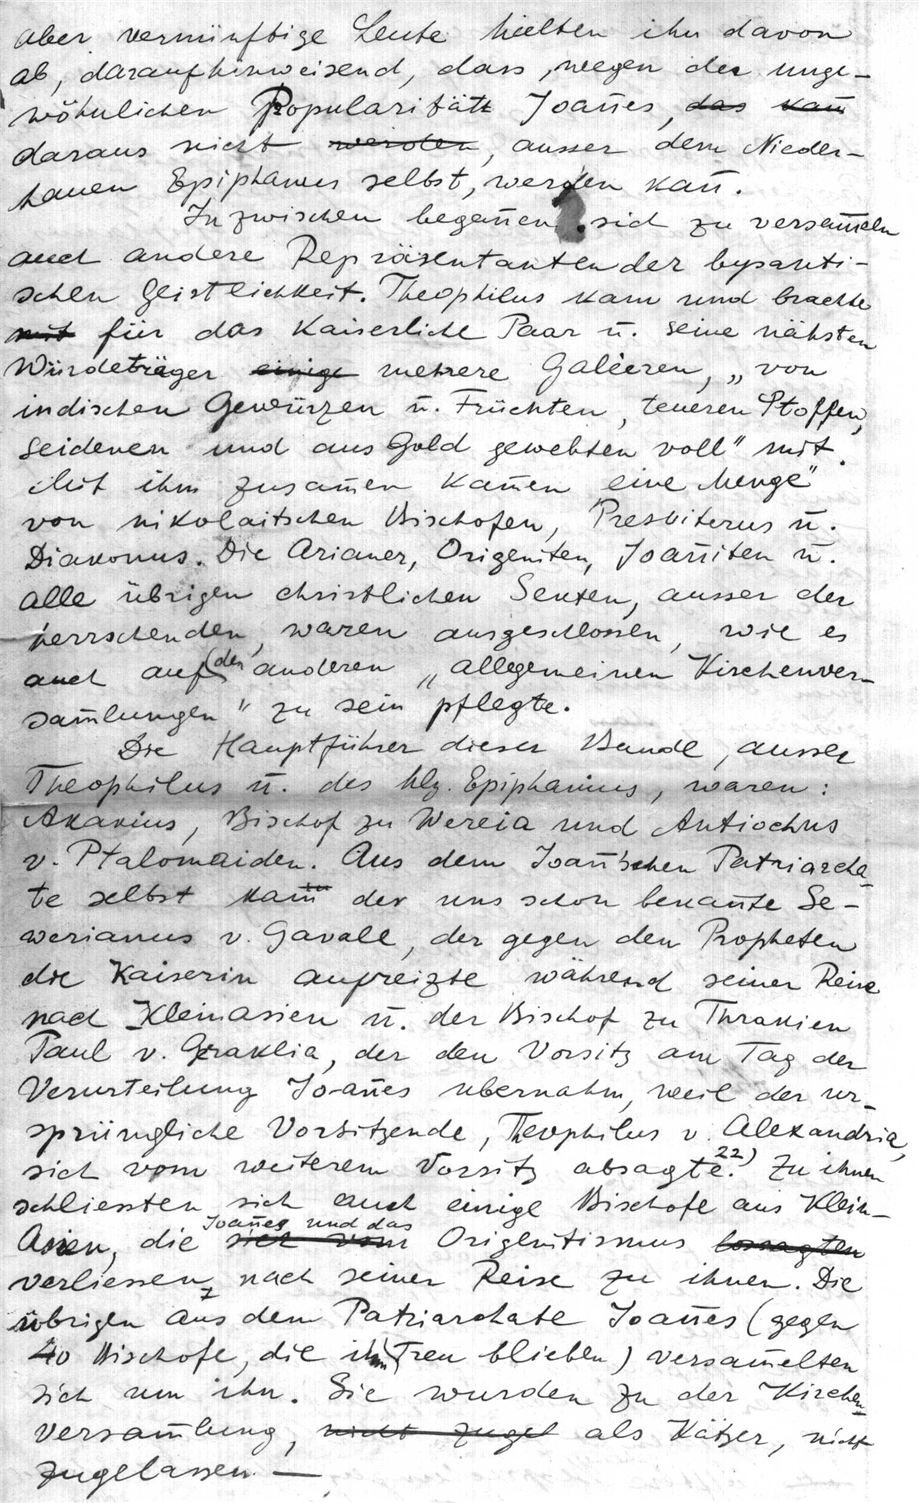 aber vernünftige Leute hielten ihn davon
ab, daraufhinweisend, dass, wegen der unge-
wöhnlichen Popularität Joan̄es, ~~das kan̄~~
daraus nicht ~~werden~~, ausser dem Nieder-
hauen Epiphanius selbst, werden kan̄.
Inzwischen began̄en sich zu versam̄eln
auch andere Repräsentanten der bysanti-
schen Geistlichkeit. Theophilus kam und brachte
~~mit~~ für das Kaiserliche Paar u. seine nähsten
Würdeträger ~~einige~~ mehrere Galeeren, „von
indischen Gewürzen u. Früchten, teueren Stoffen,
seidenen und aus Gold gewebten voll" mit.
Mit ihm zusam̄en kam̄en eine Menge"
von nikolaitschen Bischofen, Presbiterus u.
Diakonus. Die Arianer, Origeniten, Joan̄iten u.
alle übrigen christlichen Sekten, ausser der
herrschenden, waren ausgeschlossen, wie es
auch auf den anderen „allgemeinen Kirchenver-
sam̄lungen" zu sein pflegte.
Die Hauptführer dieser Bande, ausser
Theophilus u. des hlg. Epiphanius, waren:
Akakius, Bischof zu Wereia und Antiochus
v. Ptalomaiden. Aus dem Joan̄'schen Patriarcha-
te selbst kam der uns schon bekan̄te Se-
werianus v. Gavale, der gegen den Propheten
die Kaiserin aufreizte während seiner Reise
nach Kleinasien u. der Bischof zu Thrakien
Paul v. Geraklia, der den Vorsitz am Tag der
Verurteilung Joan̄es ubernahm, weil der ur-
sprüngliche Vorsitzende, Theophilus v. Alexandria,
sich vom weiterem Vorsitz absagte.²²⁾ Zu ihnen
schliessten sich auch einige Bischofe aus Klein-
Asien, die ~~sich vom~~ Joan̄es und das Origenitismus ~~lossagten~~
verliessen, nach seiner Reise zu ihnen. Die
übrigen aus dem Patriarchate Joan̄es (gegen
40 Bischofe, die ihm Treu blieben) versam̄elten
sich um ihn. Sie wurden zu der Kirchen-
versam̄lung, ~~nicht zugel~~ als Kätzer, nicht
zugelassen —